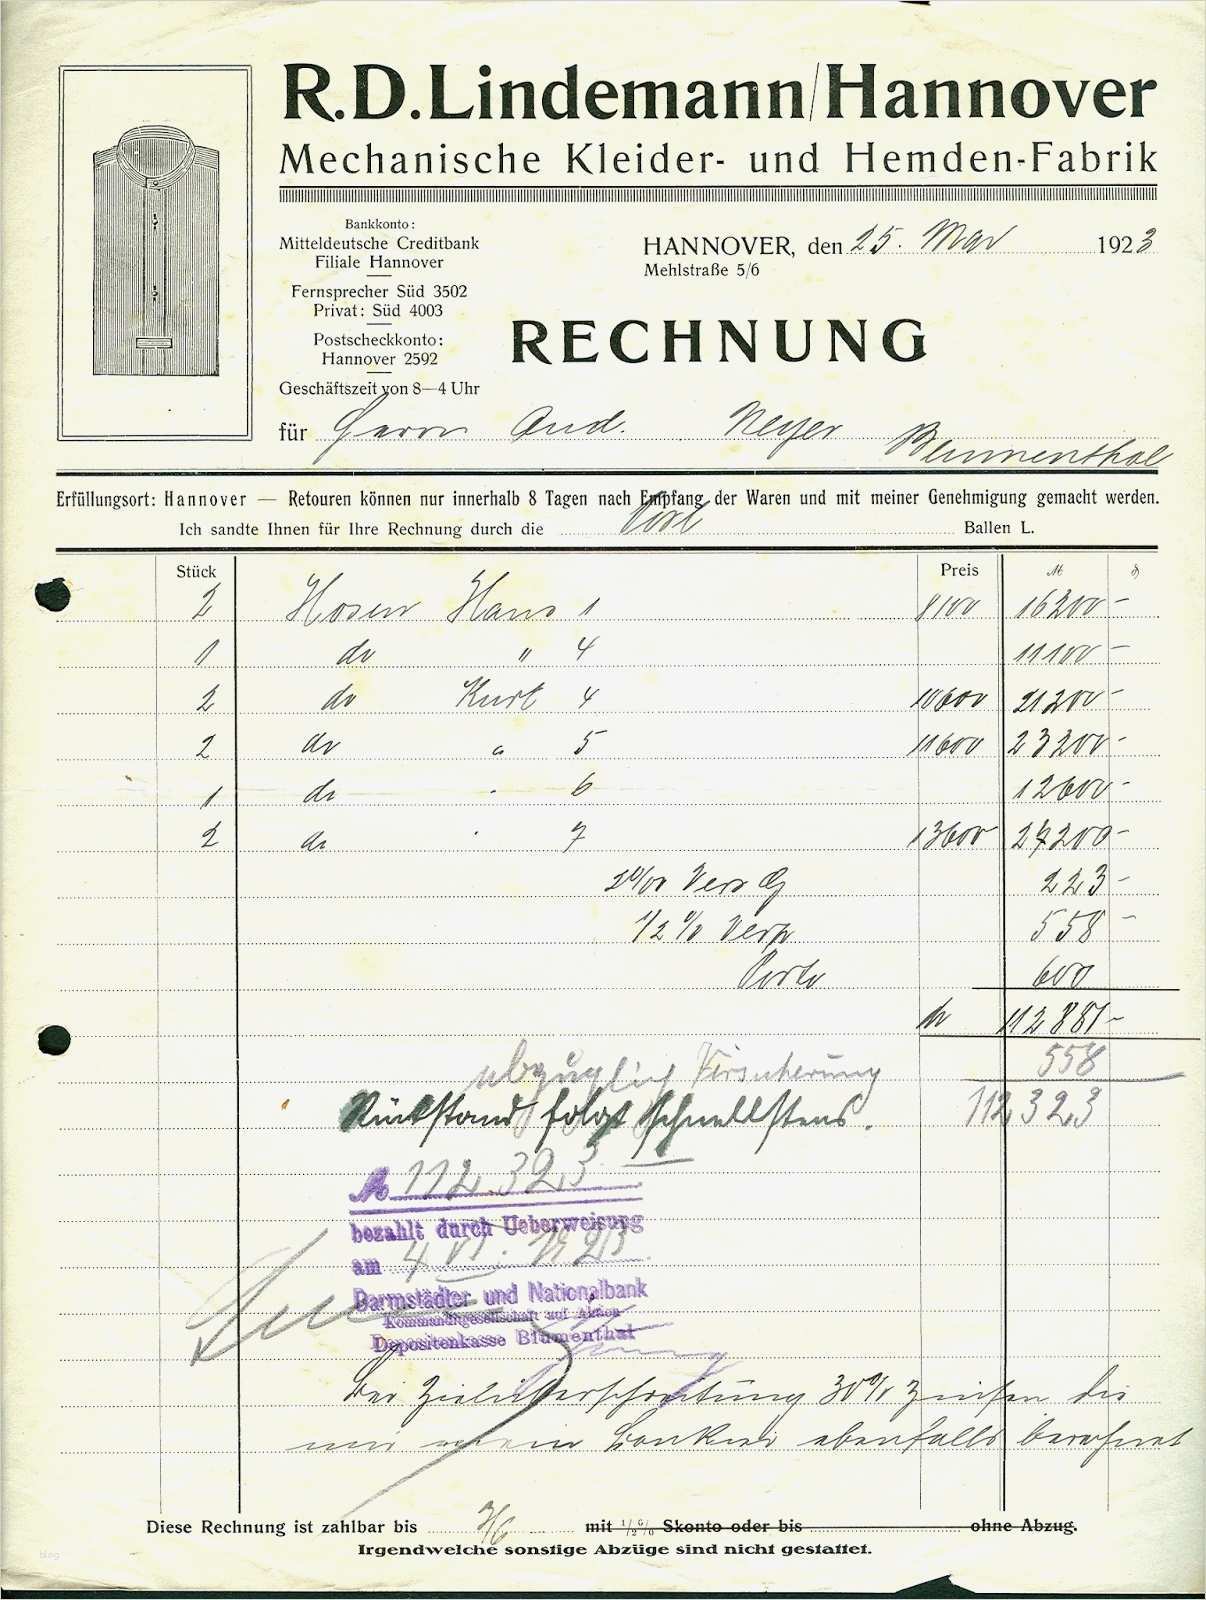 R.D. Lindemann/Hannover
Mechanische Kleider- und Hemden-Fabrik
Bankkonto:
Mitteldeutsche Creditbank
Filiale Hannover
Fernsprecher Süd 3502
Privat: Süd 4003
Postscheckkonto:
Hannover 2592
Geschäftszeit von 8—4 Uhr
HANNOVER, den 25. Mai 1923
Mehlstraße 5/6
RECHNUNG
für Herrn And. Meyer Blumenthal
Erfüllungsort: Hannover — Retouren können nur innerhalb 8 Tagen nach Empfang der Waren und mit meiner Genehmigung gemacht werden.
Ich sandte Ihnen für Ihre Rechnung durch die Post Ballen L.
Stück Preis M ₰
2 Hosen Hans 1 8100 16200 -
1 do " 4 11100 -
2 do Kurt 4 10600 21200 -
2 do " 5 11600 23200 -
1 do " 6 12600 -
2 do " 7 13600 27200 -
2 0/00 Vers G 223 -
1/2 % Verp 558 -
Porto 600
M 112881 -
abzüglich Versicherung 558
112323
Rückstand folgt schnellstens.
M 112.323
bezahlt durch Ueberweisung
am 4 VI. 1923
Darmstädter und Nationalbank
Kommanditgesellschaft auf Aktien
Depositenkasse Blumenthal
Bei Zielüberschreitung 30% Zinsen die
mir mein Bankier ebenfalls berechnet
Diese Rechnung ist zahlbar bis 3/6 mit 1/2 % Skonto oder bis ohne Abzug.
Irgendwelche sonstige Abzüge sind nicht gestattet.
blog